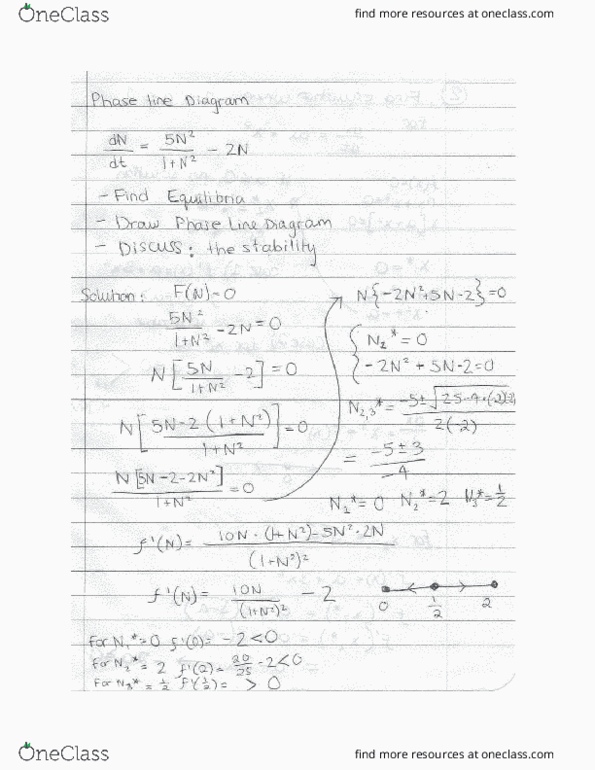 OneClass
find more resources at oneclass.com
Phase line Diagram
dN/dt = 5N²/1+N² - 2N
- Find Equilibria
- Draw Phase Line Diagram
- Discuss: the stability
Solution: F(N)=0
5N²/1+N² - 2N=0
N[5N/1+N² - 2]=0
N[5N-2(1+N²)/1+N²]=0
N[5N-2-2N²]/1+N² =0
N{-2N²+5N-2}=0
N₂*=0
-2N²+5N-2=0
N₂,₃*= -5±√25-4·(-2)(-2)/2(-2)
= -5±3/-4
N₁*=0 N₂*=2 N₃*=1/2
f'(N)= 10N·(1+N²)-5N²·2N/(1+N²)²
f'(N)= 10N/(1+N²)² - 2
0 1/2 2
For N₁*=0 f'(0)= -2<0
For N₂*= 2 f'(2)= 20/25 -2<0
For N₃*= 1/2 f'(1/2)= >0
OneClass
find more resources at oneclass.com